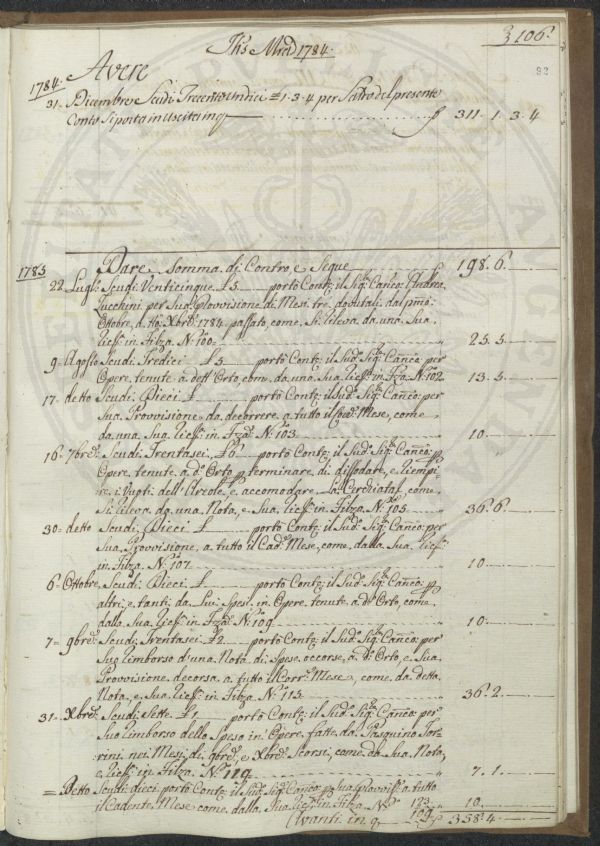 Jhs Mrã 1784.
3106.
92
1784. Avere
31. Dicembre Scudi Trecento Undici £ 1. 3. 4 per Saldo del presente
Conto Si porta in Uscita in q. f 311. 1. 3. 4
1785 Dare Somma di Contro, e Segue 198. 6.
22. Lugl: Scudi Venticinque £ 5 portò Conti: il Sig: Canco: Andrea
Zucchini per Sua Provvisione di Mesi tre, dovutali dal pmo:
Ottobre, a tto Xbre 1784. passato, come Si rileva da una Sua
Ricev: in Filza Nº 100= 25. 5.
9. Agosto Scudi Tredici £ 5. portò Conti: il Sudº Sigr Canco: per
Opere tenute a detto Orto, come da una Sua Ricev: in Fza Nº 102. 13. 5.
17. detto Scudi Dieci £ portò Conti: il Sudº Sigr Canco: per
Sua Provvisione da decorrere a tutto il Mese, come
da una Sua Ricev: in Fza Nº 103. 10.
16. 7bre: Scudi Trentasei £ 6 portò Conti: il Sudº Sigr Canco: p
Opere tenute a dº Orto p terminare di dissodare, e riempi-
re i Vuoti dell' Areole, e accomodare come
Si rileva da una Nota, e Sua Ricev: in Filza Nº 105. 36. 6.
30. detto Scudi Dieci £ portò Conti: il Sudº Sigr Canco: per
Sua Provvisione a tutto il Cadº Mese, come dalla Sua Ricev:
in Filza Nº 107. 10.
6. Ottobre Scudi Dieci £ portò Conti: il Sudº Sigr Canco: p
altri, e tanti da Lui Spesi in Opere tenute a dº Orto, come
dalla Sua Ricev: in Fza Nº 109. 10.
7. 9bre Scudi Trentasei £ 2. portò Conti: il Sudº Sigr Canco: per
Suo rimborso d'una Nota di Spese occorse a dº Orto, e Sua
Provvisione decorsa a tutto il Corre Mese, come da detta
Nota, e Sua Ricev: in Filza Nº 115. 36. 2.
31. Xbre Scudi Sette £ 1. portò Conti: il Sudº Sigr Canco: per
Suo rimborso dello Speso in Opere fatte da Pasquino Tor-
rini nei Mesi di 9bre, e Xbre Scorsi, come da Sua Nota,
e Ricev: in Filza Nº 119. 7. 1.
= Detto Scudi dieci portò Conti: il Sudº Sigr Canco: p Sua Provvisº a tutto
il Cadente Mese come dalla Sua Ricev: in Filza Nº 123. 10.
Avanti in q. 109. f 358. 4.